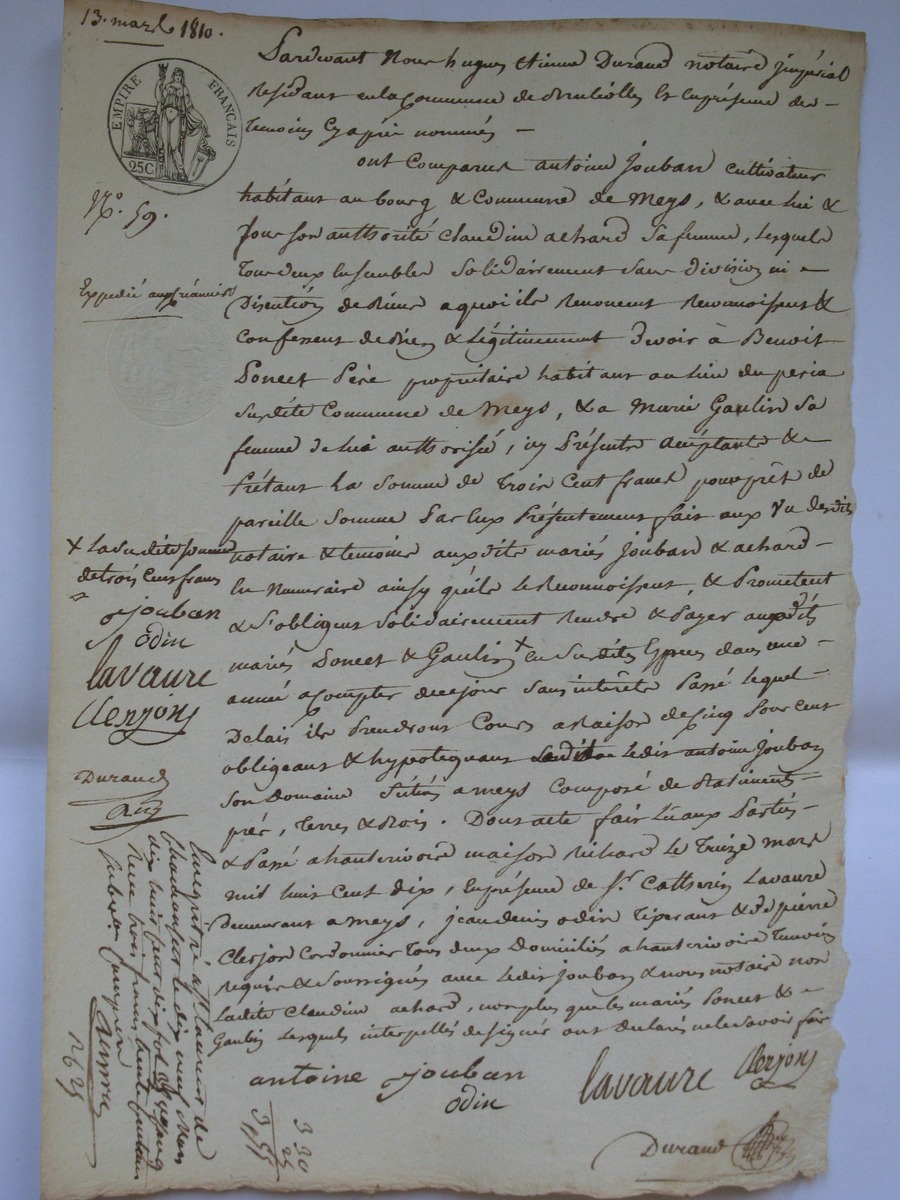 13. mars 1810.
EMPIRE FRANÇAIS
25C
N°. 59.
Expedié aux créanciers
Pardevant Nous hugues etienne Durand notaire jmpérial
Residant en la Commune de & en présence des
Temoins Cy après nommés —
ont Comparus antoine Jouban cultivateur
habitant au bourg & Commune de Meys, & avec lui &
sous son authorité Claudine achard sa femme, Lesquels
Tous deux Ensembles Solidairement sans division ni
Discution de Biens a quoi ils Renoncent Reconnoissent &
Confessent de Bien & Légitimement Devoir à Benoit
Poncet Père propriétaire habitant au lieu du peria
Susdite Commune de Meys, & a Marie Gaulin sa
femme de lui authorisée, icy Présente acceptante &
Prétant La Somme de Trois Cent francs pour prêt de
pareille Somme Par Eux Présentement fait aux vu desdits
notaire & temoins aux dits mariés Jouban & achard
En Numeraire ainsy qu'ils Le Reconnoissent, & Promettent
& S'obligent Solidairement Rendre & Payer auxdits
mariés Poncet & Gaulin x En Susdites Espèces dans une
année a Compter de ce jour sans intérêts Passé lequel
Delais ils Prendront Cours a Raison de Cinq Pour Cent
obligeant & hypotequant Ledit antoine Jouban
Son Domaine Situé a Meys Composé de Batiments
prés, Terres & Bois. Dont acte fait Lu aux Parties
& Passé a hauterivoire maison Richard Le Treize mars
mil huit Cent dix, En présence de Sr. Catherin Lavaure
Demeurant a meys, jean denis odin & de pierre
Clerjon Cordonnier tous deux Domiciliés a hauterivoire Temoins
requis & Soussignés avec Ledit Jouban & nous notaire non
Ladite Claudine achard, non plus que les mariés Poncet &
Gaulin Lesquels interpellés de signer ont déclaré ne le savoir fair
x La Susdite somme
de trois Cent francs
Jouban
odin
Lavaure
Clerjon
Durand
Enregistré à St Laurent de
Chamousset le dix neuf mars
dix huit cent dix fol
Reçu trois francs trente centimes
antoine Jouban
odin
Lavaure
Clerjon
Durand
3 30
25